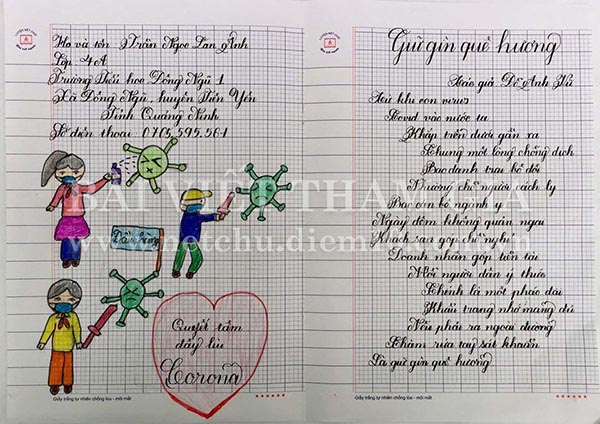 Họ và tên Trần Ngọc Lan Anh
Lớp 4A
Trường Tiểu học Đông Ngũ 1
Xã Đông Ngũ, huyện Tiên Yên
Tỉnh Quảng Ninh
Số điện thoại 0703.595.561
Quyết tâm
đẩy lùi
Corona
Giấy trắng tự nhiên chống lóa - mỏi mắt
Giữ gìn quê hương
Tác giả Đỗ Anh Vũ
Từ khi con virus
Covid vào nước ta
Khắp trên dưới gần xa
Chung một lòng chống dịch
Bao danh trại bộ đội
Nhường chỗ người cách ly
Bao cán bộ ngành y
Ngày đêm không quản ngại
Khách sạn góp chỗ nghỉ
Doanh nhân góp tiền tài
Mỗi người dân ý thức
Chính là một pháo đài
Khẩu trang nhớ mang đủ
Nếu phải ra ngoài đường
Chăm rửa tay sát khuẩn
Là giữ gìn quê hương
Giấy trắng tự nhiên chống lóa - mỏi mắt
BÀI VIẾT THAM GIA